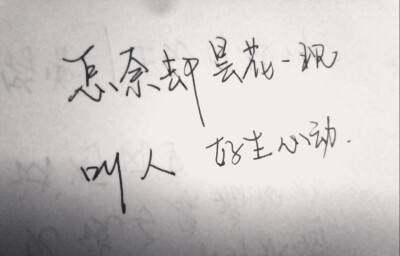 怎奈却昙花一现
叫人 好生心动.